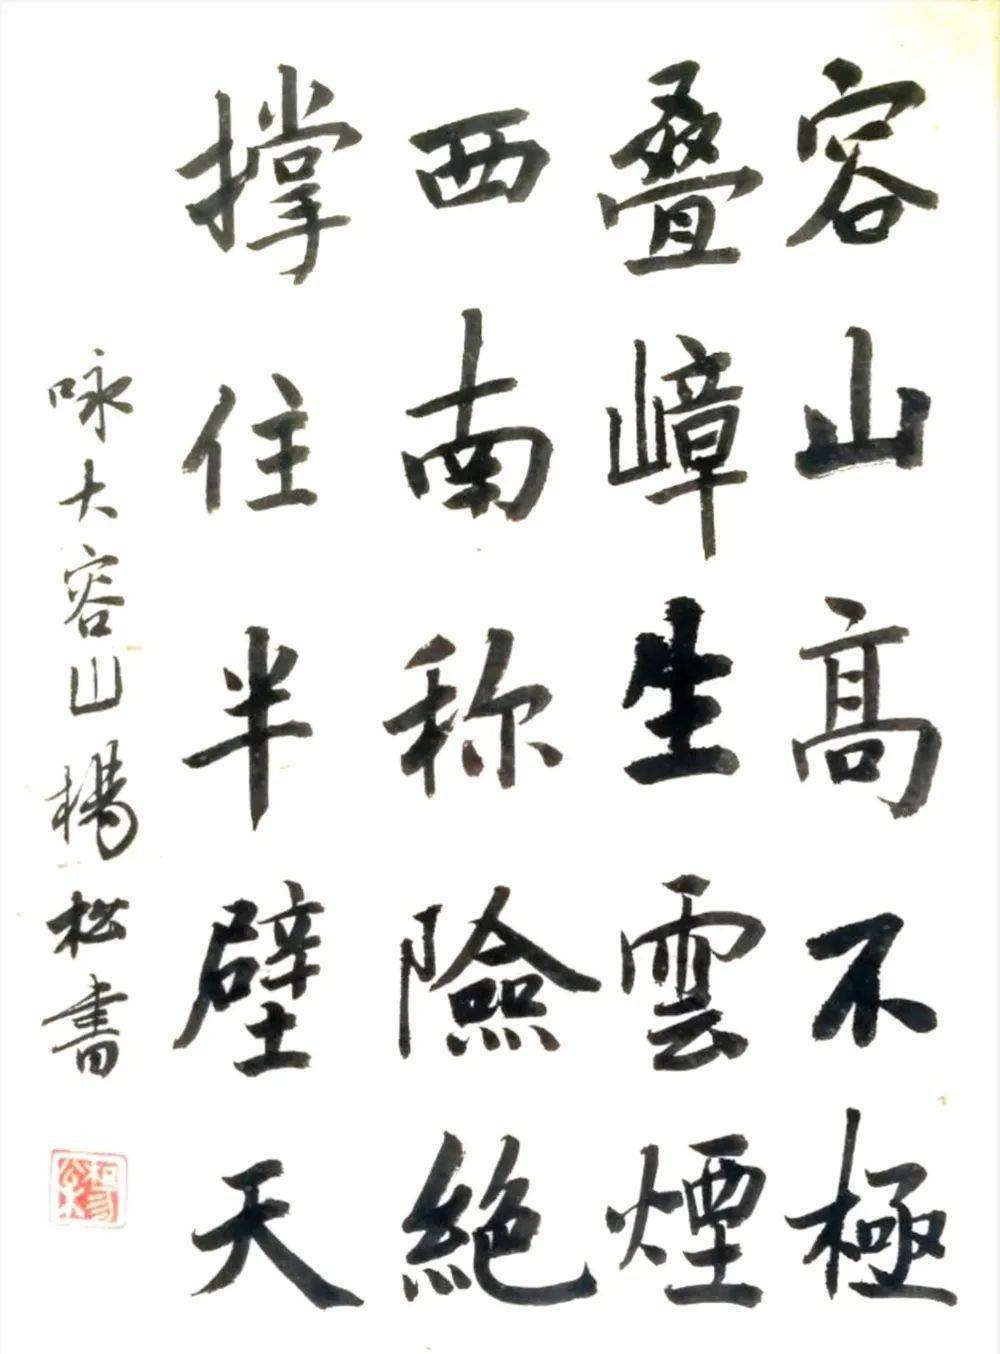 容山高不極
叠嶂生雲煙
西南称險絶
撑住半壁天
咏大容山楊松書
楊松